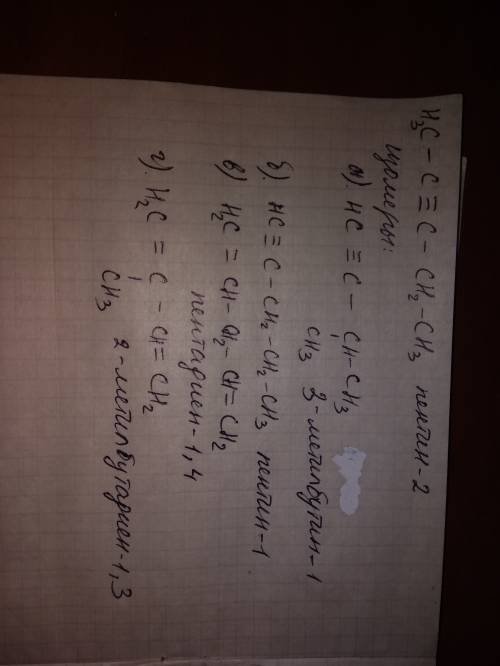 H₃C – C ≡ C – CH₂ – CH₃ пентин-2
изомеры:
а). HC ≡ C – CH – CH₃
CH₃ 3-метилбутин-1
б). HC ≡ C – CH₂ – CH₂ – CH₃ пентин-1
в). H₂C = CH – CH₂ – CH = CH₂
пентадиен-1,4
г). H₂C = C – CH = CH₂
CH₃ 2-метилбутадиен-1,3